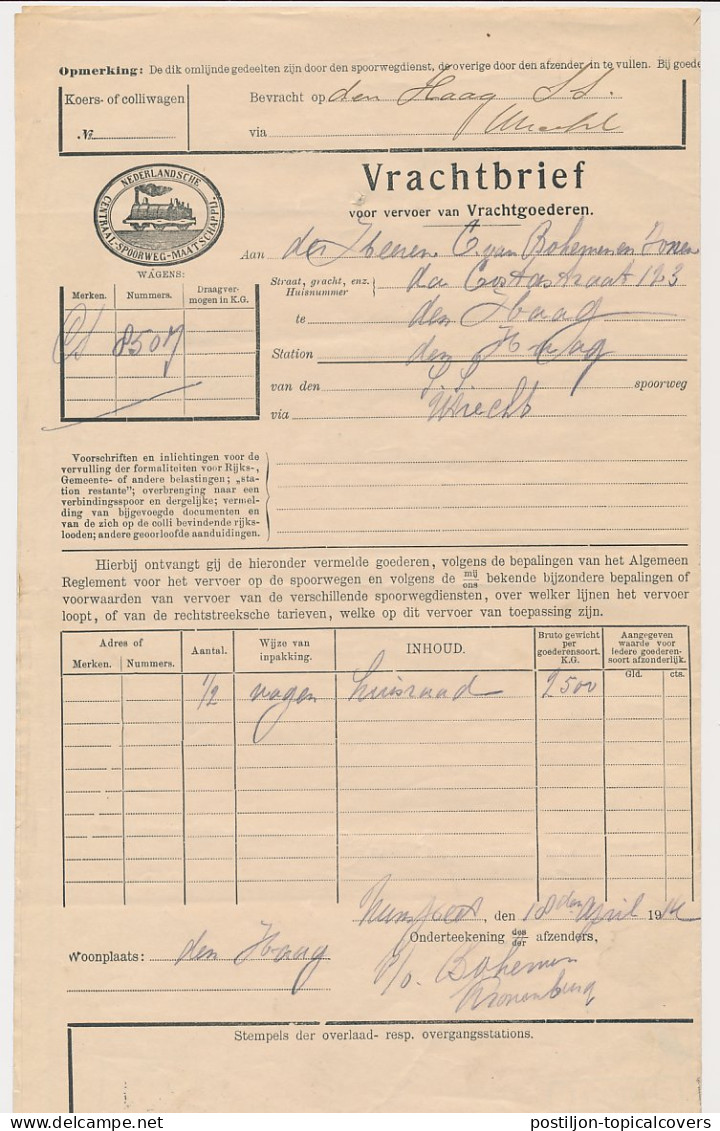 Opmerking: De dik omlijnde gedeelten zijn door den spoorwegdienst, de overige door den afzender in te vullen. Bij goede
Koers- of colliwagen
№
Bevracht op den Haag S.S.
via Utrecht
NEDERLANDSCHE
CENTRAAL-SPOORWEG-MAATSCHAPPIJ.
Vrachtbrief
voor vervoer van Vrachtgoederen.
Aan de Heeren C van Bohemen en Zonen
Straat, gracht, enz.
Huisnummer
da Costastraat 123
te den Haag
Station den Haag
van den S.S. spoorweg
via Utrecht
WAGENS:
Merken. Nummers. Draagver-
mogen in K.G.
CS 8507
Voorschriften en inlichtingen voor de
vervulling der formaliteiten voor Rijks-,
Gemeente- of andere belastingen; „sta-
tion restante”; overbrenging naar een
verbindingsspoor en dergelijke; vermel-
ding van bijgevoegde documenten en
van de zich op de colli bevindende rijks-
looden; andere geoorloofde aanduidingen.
Hierbij ontvangt gij de hieronder vermelde goederen, volgens de bepalingen van het Algemeen
Reglement voor het vervoer op de spoorwegen en volgens de mij/ons bekende bijzondere bepalingen of
voorwaarden van vervoer van de verschillende spoorwegdiensten, over welker lijnen het vervoer
loopt, of van de rechtstreeksche tarieven, welke op dit vervoer van toepassing zijn.
Adres of
Merken. Nummers.
Aantal.
Wijze van
inpakking.
INHOUD.
Bruto gewicht
per
goederensoort.
K.G.
Aangegeven
waarde voor
iedere goederen-
soort afzonderlijk.
Gld. cts.
1/2 wagen huisraad 2500
, den 18den April 19
Onderteekening des/der afzenders,
Woonplaats: den Haag
p/o. Bohemen
Kronenburg
Stempels der overlaad- resp. overgangsstations.
postiljon-topicalcovers